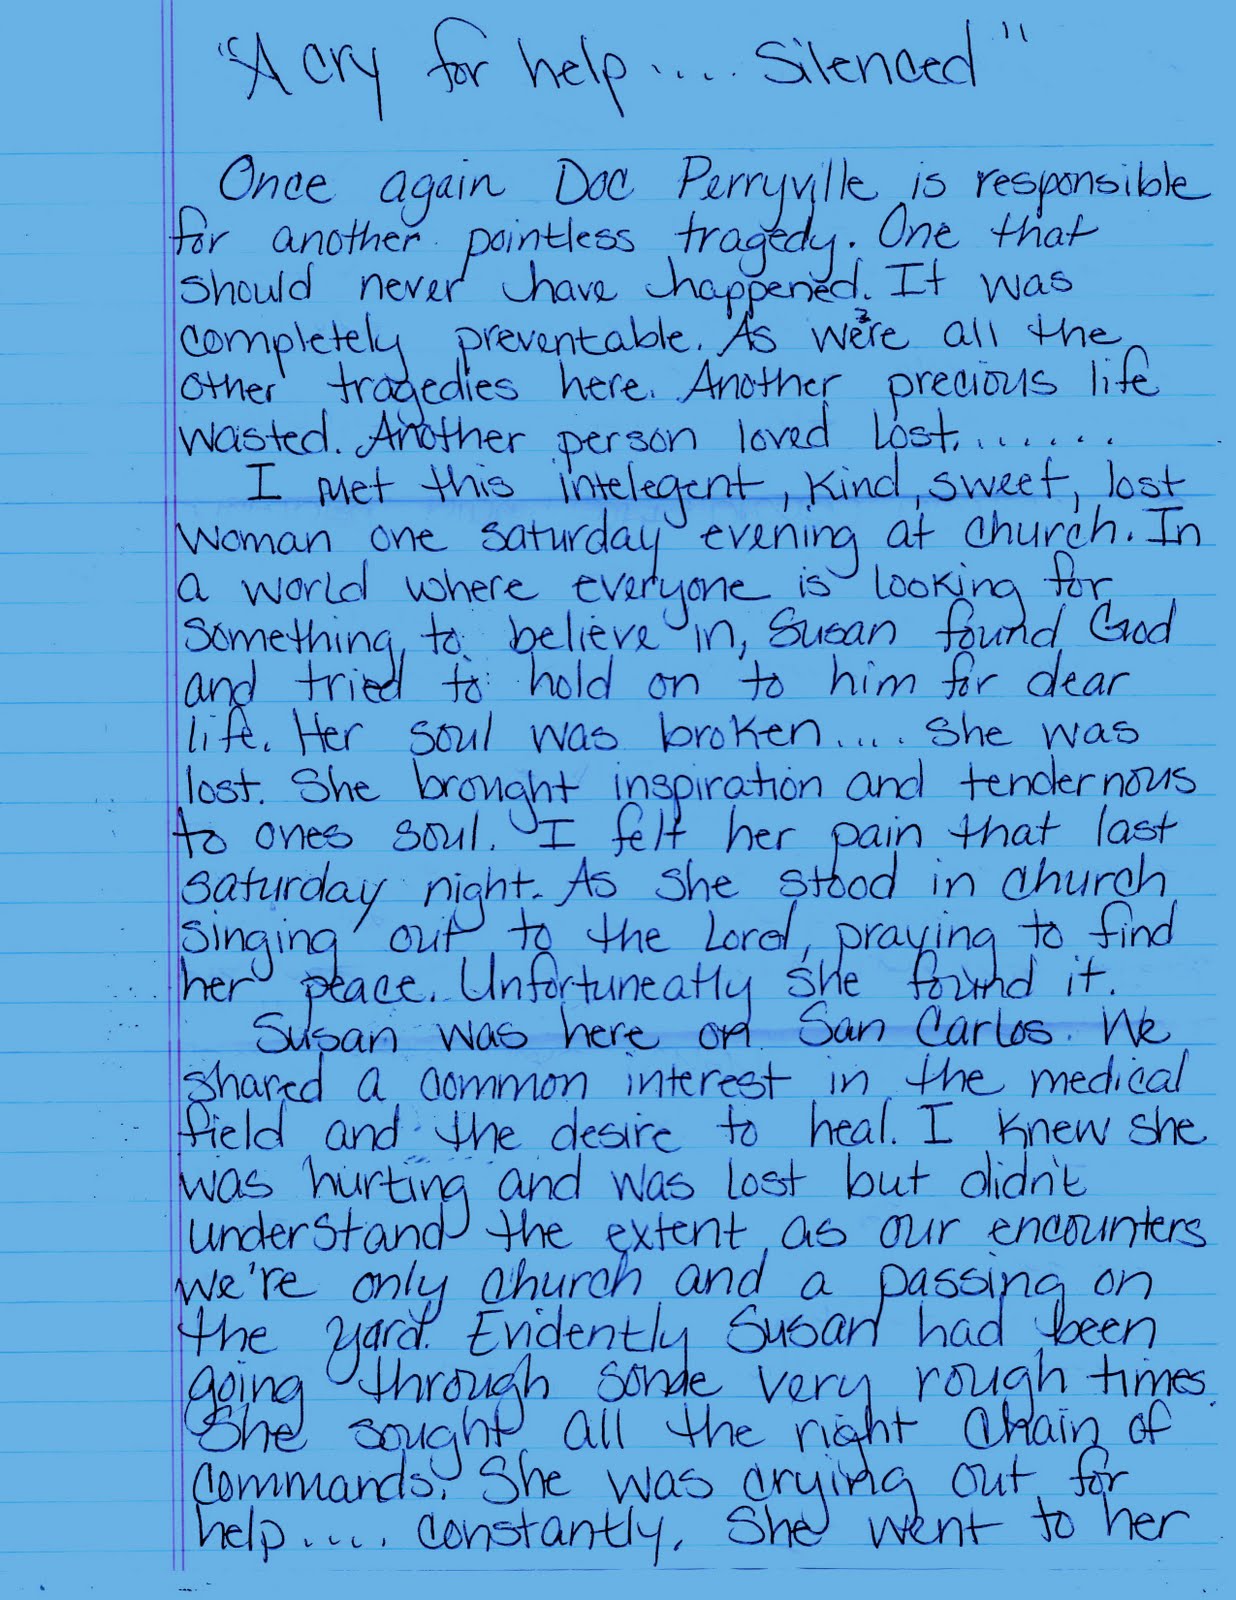 "A cry for help.... Silenced"
Once again Doc Perryville is responsible
for another pointless tragedy. One that
should never have happened. It was
completely preventable. As we're all the
other tragedies here. Another precious life
wasted. Another person loved lost.......
I met this intelegent, kind, sweet, lost
woman one saturday evening at church. In
a world where everyone is looking for
something to believe in, Susan found God
and tried to hold on to him for dear
life. Her soul was broken.... she was
lost. She brought inspiration and tendernous
to ones soul. I felt her pain that last
saturday night. As she stood in church
singing out to the Lord, praying to find
her peace. Unfortuneatly she found it.
Susan was here on San Carlos. We
shared a common interest in the medical
field and the desire to heal. I knew she
was hurting and was lost but didn't
understand the extent as our encounters
we're only church and a passing on
the yard. Evidently Susan had been
going through some very rough times.
She sought all the right chain of
commands. She was crying out for
help.... constantly. She went to her